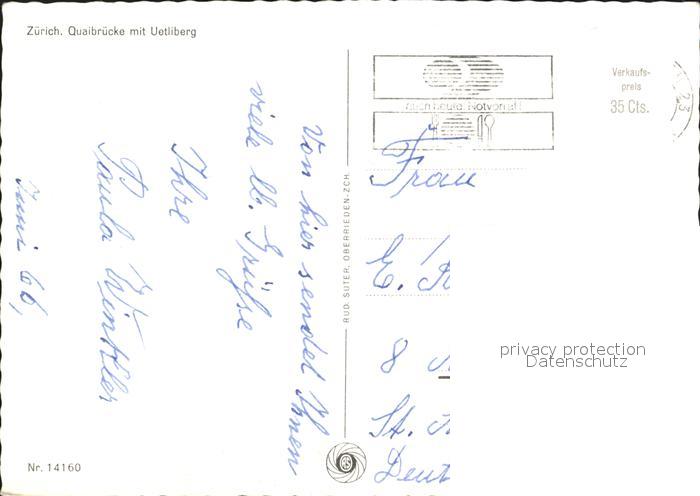 Zürich. Quaibrücke mit Uetliberg
Von hier sendet Ihnen
viele lb. Grüße
Ihre
Paula Winkler
Juni 66,
Nr. 14160
RUD. SUTER, OBERRIEDEN-ZCH.
auch heute: Notvorrat
Verkaufs-
preis
35 Cts.
Frau
E. R
8
St.
Deut
privacy protection
Datenschutz